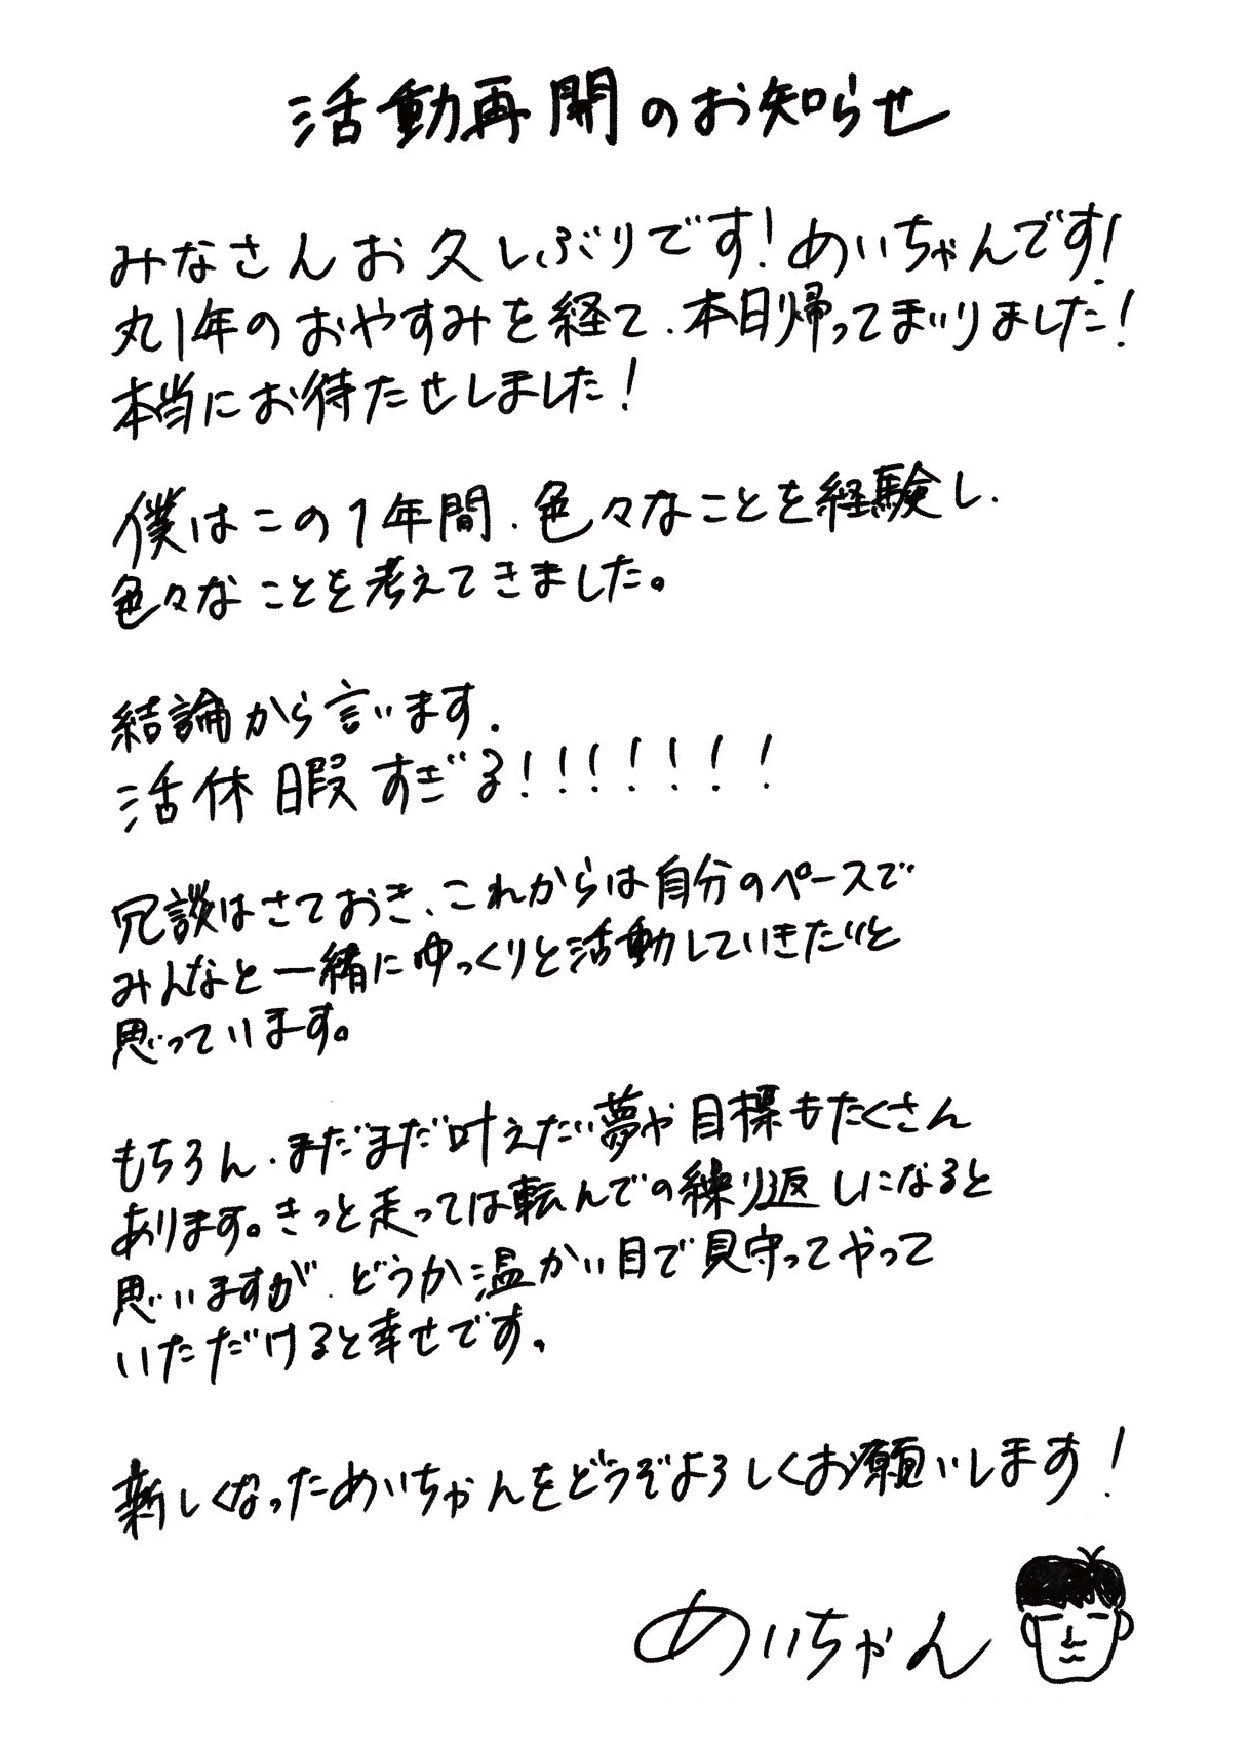 活動再開のお知らせ
みなさんお久しぶりです！めいちゃんです！
丸1年のおやすみを経て、本日帰ってまいりました！
本当にお待たせしました！
僕はこの1年間、色々なことを経験し、
色々なことを考えてきました。
結論から言います、
活休暇すぎる！！！！！！！
冗談はさておき、これからは自分のペースで
みんなと一緒にゆっくりと活動していきたいと
思っています。
もちろん、まだまだ叶えたい夢や目標もたくさん
あります。きっと走っては転んでの繰り返しになると
思いますが、どうか温かい目で見守ってやって
いただけると幸せです。
新しくなっためいちゃんをどうぞよろしくお願いします！
めいちゃん